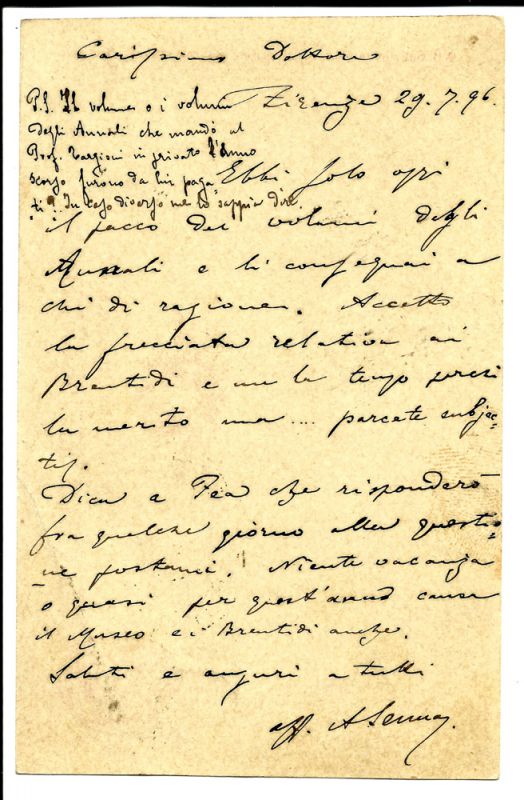 Carissimo Dottore
Firenze 29. 7. 96.
P.S. Il volume o i volumi
degli Annali che mandò al
Prof. Targioni in privato l'anno
scorso furono da lui paga-
ti? In caso diverso me lo sappia dire.
Ebbi solo oggi
il pacco dei volumi degli
Annali e li consegnai a
chi di ragione. Accetto
la frecciata relativa ai
Brentidi e me la tengo perchè
la merito ma .... parcete subjec-
tis.
Dica a Fea che risponderò
fra qualche giorno alla questio-
ne postami. Niente vacanza
o quasi per quest'anno causa
il Museo e i Brentidi anche.
Saluti e auguri a tutti
aff. A Senna